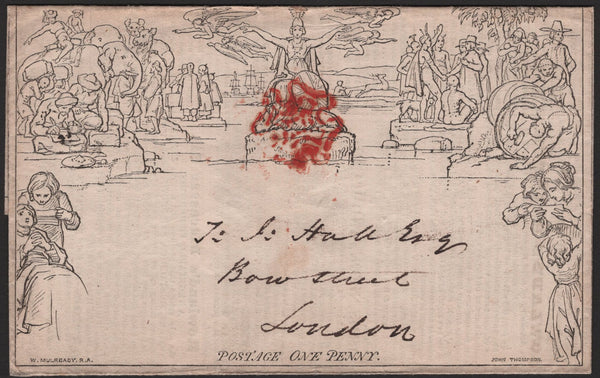 T: J: Hall Esq
Bow Street
London
POSTAGE ONE PENNY.
W. MULREADY. R.A.
JOHN THOMPSON.